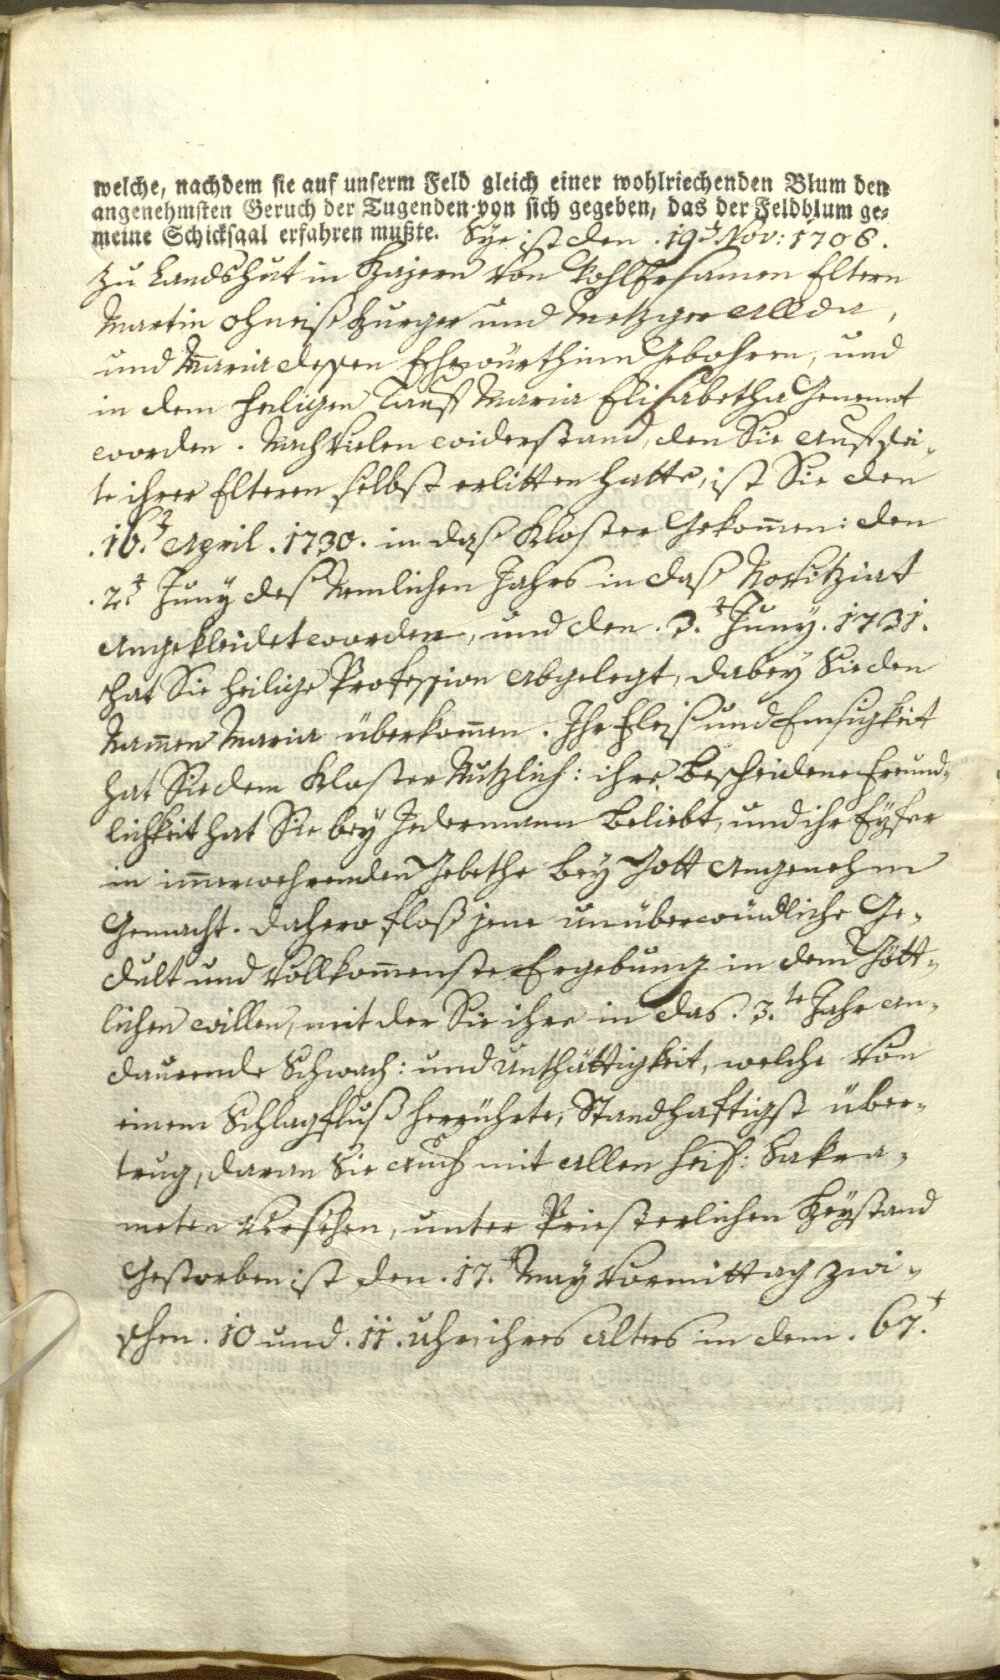 welche, nachdem sie auf unserm Feld gleich einer wohlriechenden Blum den
angenehmsten Geruch der Tugenden von sich gegeben, das der Feldblum ge-
meine Schicksaal erfahren mußte. Sye ist den .19.t Nov: 1706.
zu Landshut in Bajern von Wohl Ersamen Eltern
Martin Burger und Metzger allda,
und Maria dessen Ehewürthinn Gebohren, und
in dem heiligen Tauf Maria Elisabetha Genennt
worden. Nach vielen widerstand, den Sie auf sei-
te ihrer Elteren selbst erlitten hatte, ist Sie den
.16.t April .1730. in daß Kloster Gekom̄en: den
.2.t Juny deß Nemlichen Jahrs in daß Novitziat
Angekleidet worden, und den .3.t Juny. 1731.
hat Sie heilige Profession abgelegt, dabey Sie den
Nam̄en Maria überkom̄en. Ihr Fleiß und Emsigkeit
hat Sie dem Kloster Nutzlich: ihre bescheidene Freund-
lichkeit hat Sie bey Jedermann Beliebt, und ihr Eyfer
in im̄erwehrenden Gebethe bey Gott Angenehm
Gemacht. dahero floß jene unüberwündliche Ge-
dult und vollkom̄enste Ergebung in dem Gött-
lichen willen, mit der Sie ihre in das .3.te Jahr an-
daurende Schwach: und Unthättigkeit, welche von
einem Schlagfluß herrührte, Standhaftigst über-
trug, daran Sie auch mit allen heil: Sakra-
menten versehen, unter Priesterlichen Beystand
Gestorben ist den .17.t May vormittag zwi-
schen .10 und .11. Uhr ihres alters in dem .67.t